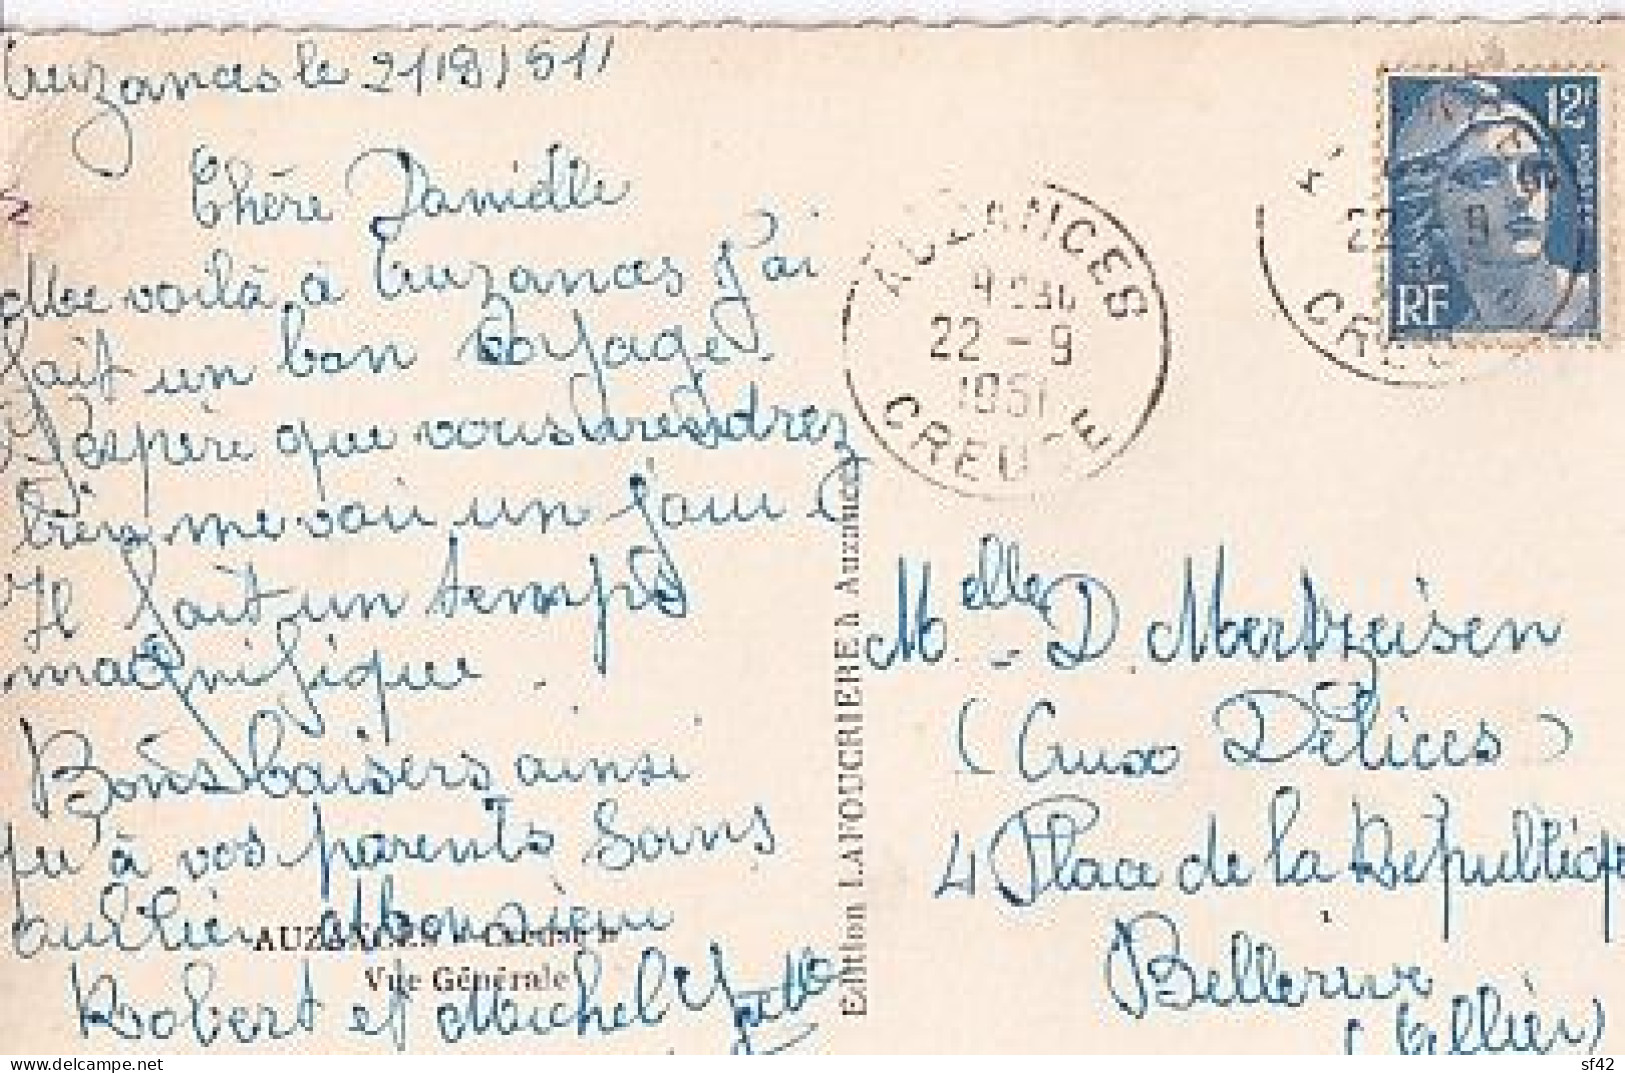 Auzances le 21/9/51
Chère Danielle
Me voilà à Auzances J'ai
fait un bon voyage.
J'espère que vous viendrez
bien me voir un jour
Il fait un temps
magnifique.
Bons baisers ainsi
qu'à vos parents Sans
oublier Monsieur
Robert et Michel
AUZANCES
Vue Générale
Edition LAFOUCRIÈRE à Auzances
AUZANCES
22 - 9
1951
CREUSE
12F
RF
22 9
CREUSE
Melle D. Mertzeisen
(Aux Délices)
4 Place de la République
Bellerive
(Allier)
sf42